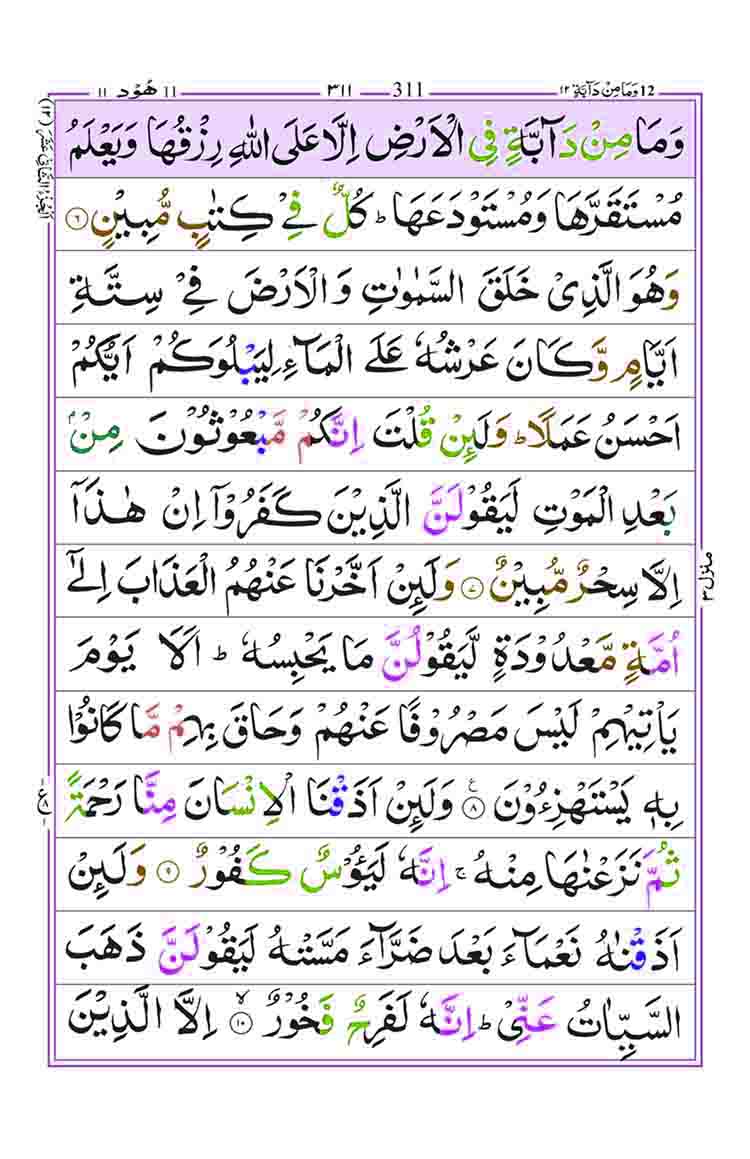 12 وَمَا مِنْ دَآبَّةٍ ١٢ 311 ٣١١ 11 هُوْد ١١
وَمَا مِنْ دَآبَّةٍ فِي الْاَرْضِ اِلَّا عَلَى اللّٰهِ رِزْقُهَا وَيَعْلَمُ
مُسْتَقَرَّهَا وَمُسْتَوْدَعَهَا ؕ كُلٌّ فِيْ كِتٰبٍ مُّبِيْنٍ ۝٦
وَهُوَ الَّذِيْ خَلَقَ السَّمٰوٰتِ وَالْاَرْضَ فِيْ سِتَّةِ
اَيَّامٍ وَّكَانَ عَرْشُهٗ عَلَى الْمَآءِ لِيَبْلُوَكُمْ اَيُّكُمْ
اَحْسَنُ عَمَلًا ؕ وَلَئِنْ قُلْتَ اِنَّكُمْ مَّبْعُوْثُوْنَ مِنْۢ
بَعْدِ الْمَوْتِ لَيَقُوْلَنَّ الَّذِيْنَ كَفَرُوْۤا اِنْ هٰذَاۤ
اِلَّا سِحْرٌ مُّبِيْنٌ ۝٧ وَلَئِنْ اَخَّرْنَا عَنْهُمُ الْعَذَابَ اِلٰۤى
اُمَّةٍ مَّعْدُوْدَةٍ لَّيَقُوْلُنَّ مَا يَحْبِسُهٗ ؕ اَلَا يَوْمَ
يَاْتِيْهِمْ لَيْسَ مَصْرُوْفًا عَنْهُمْ وَحَاقَ بِهِمْ مَّا كَانُوْا
بِهٖ يَسْتَهْزِءُوْنَ ۝٨ ع وَلَئِنْ اَذَقْنَا الْاِنْسَانَ مِنَّا رَحْمَةً
ثُمَّ نَزَعْنٰهَا مِنْهُ ۚ اِنَّهٗ لَيَـُٔوْسٌ كَفُوْرٌ ۝٩ وَلَئِنْ
اَذَقْنٰهُ نَعْمَآءَ بَعْدَ ضَرَّآءَ مَسَّتْهُ لَيَقُوْلَنَّ ذَهَبَ
السَّيِّاٰتُ عَنِّيْ ؕ اِنَّهٗ لَفَرِحٌ فَخُوْرٌ ۝١٠ ۙ اِلَّا الَّذِيْنَ
منزل ٣
ع ٨